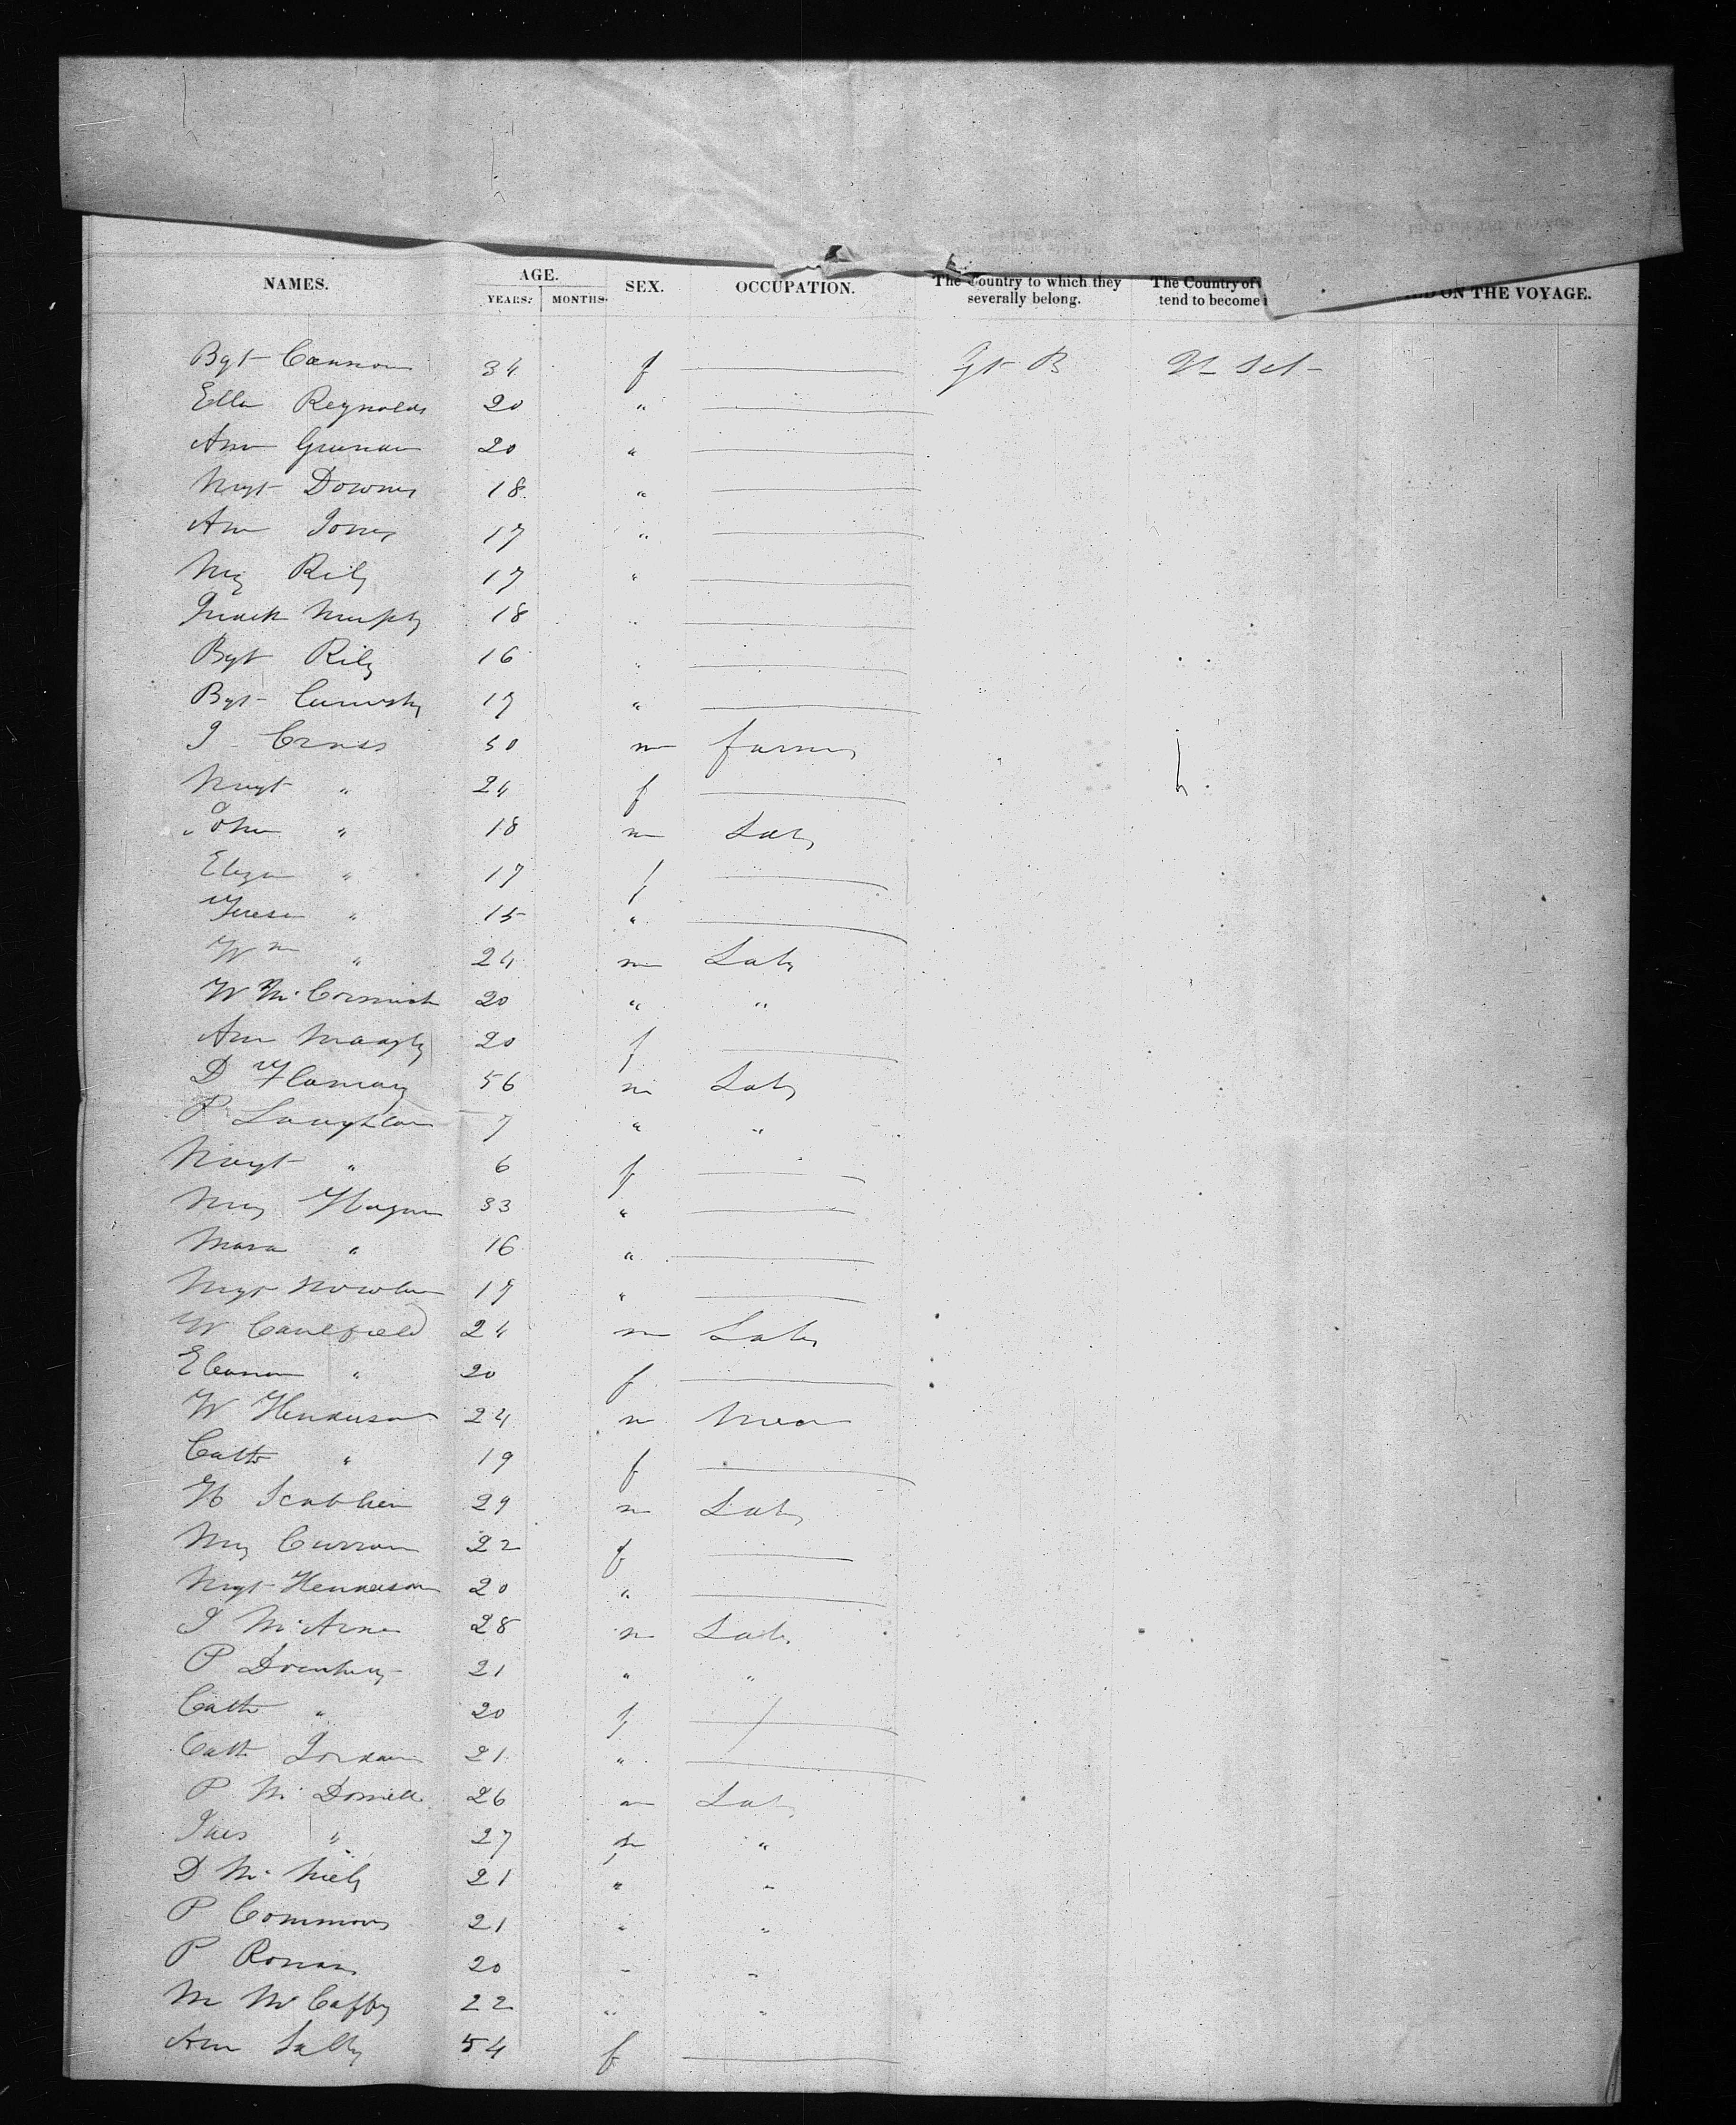 NAMES. AGE. YEARS. MONTHS. SEX. OCCUPATION. The Country to which they severally belong. The Country of tend to become i ON THE VOYAGE.
Bgt Cannon 34 f Gt B U Sts
Ellen Reynolds 20 "
Ann 20 "
Mgt Downes 18 "
Ann Jones 17 "
My Rily 17 "
Murphy 18 "
Bgt Rily 16 "
Bgt 17 "
J Cross 50 m farmer
Mgt " 24 f
John " 18 m Labr
Eliza " 17 f
" 15 "
Wm " 24 m Labr
W McCormick 20 " "
Ann 20 f
D 56 m Labr
P Laughlan 7 " "
Mgt " 6 f
My Hagan 33 "
Maria " 16 "
Mgt Nowlan 19 "
W Caulfield 24 m Labr
Eleanor " 20 f
W Henderson 24 m
Cath " 19 f
H 29 m Labr
My Curran 22 f
Mgt Henderson 20 "
J 28 m Labr
P 21 " "
Cath " 20 f
Cath Jordan 21 "
P McDonnell 26 m Labr
" 27 m "
D 21 " "
P Commons 21 " "
P Ronan 20 " "
M McCaffry 22 " "
Ann Lally 54 f